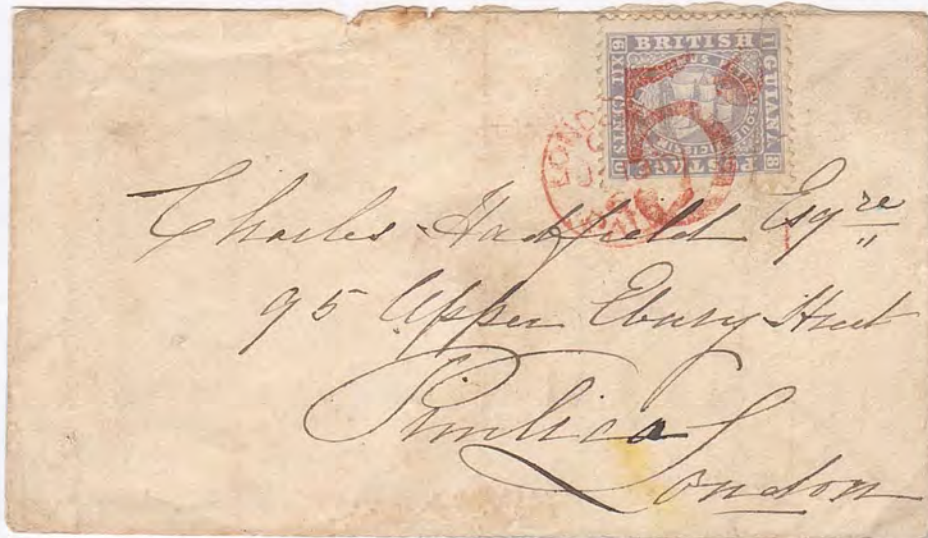 BRITISH
GUIANA
POSTAGE
SIX CENTS
1 8 6
5
Charles Hadfield Esqre
95 Upper Ebury Street
Pimlico
London